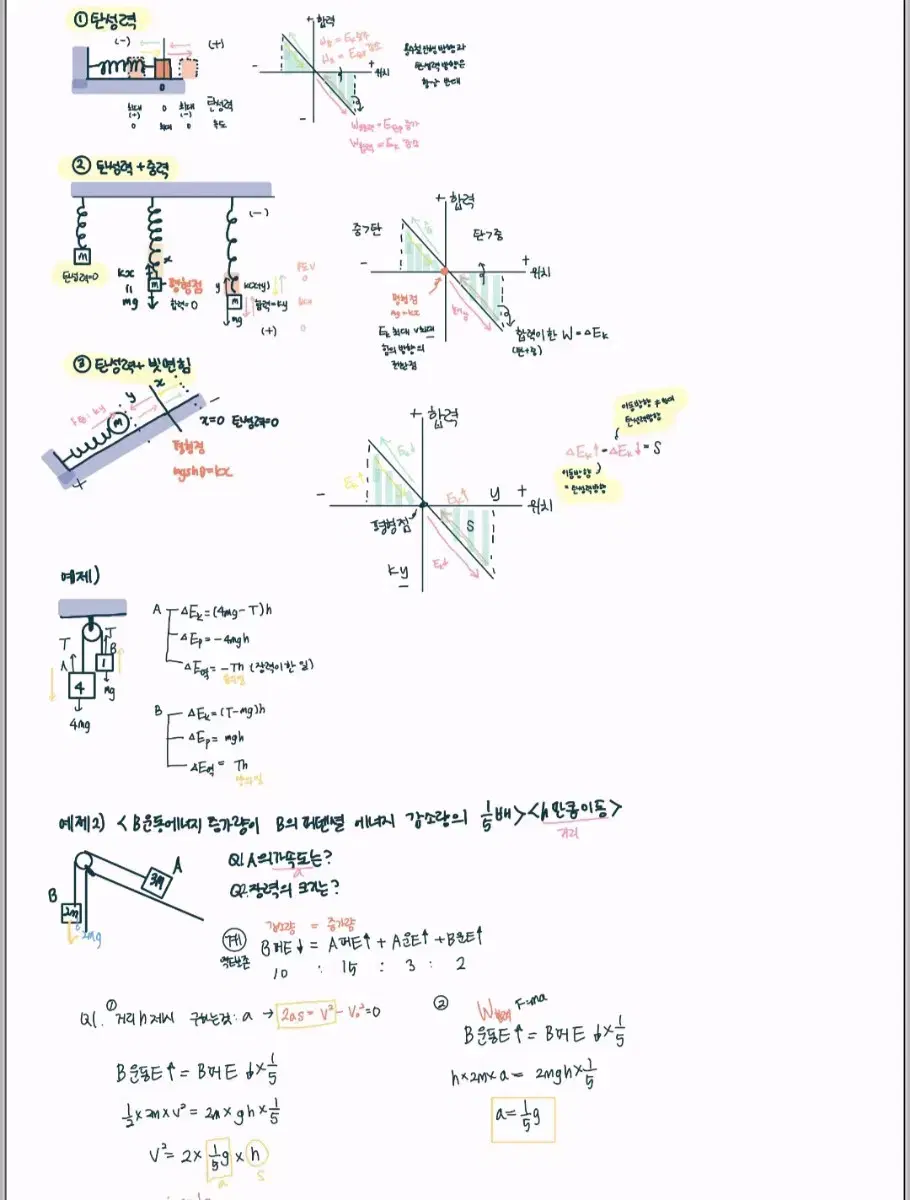 ① 탄성력
(-) (+)
0
최대 0 최대 탄성력
(+) (-)
0 최대 0 속도
+ 합력
- + 위치
-
W합력 = Ek 감소
② 탄성력 + 중력
(-)
m
탄성력=0
kx
||
mg
x
m
평형점
합력=0
y
k(x+y)
m
합력=ky
mg
(+)
+ 합력
중>탄 탄>중
- + 위치
평형점
mg=kx
Ek 최대 v최대
힘의 방향의
전환점
-
합력이한 W=ΔEk
(탄+중)
③ 탄성력+ 빗면힘
x
y
m
-
+
x=0 탄성력=0
평형점
mgsinθ=kx
+ 합력
Ek↓
Ek↑
Ek↑
y
- + 위치
평형점
S
Ek↓
ky
-
ΔEk↑-ΔEk↓=S
이동방향
=탄성력방향
예제1)
T T
A B
4 1
mg
4mg
A ΔEk=(4mg-T)h
ΔEp=-4mgh
ΔE역=-Th (장력이한 일)
B ΔEk=(T-mg)h
ΔEp=mgh
ΔE역=Th
예제2) <B운동에너지 증가량이 B의 퍼텐셜 에너지 감소량의 1/5배> <h만큼이동>
거리
A
3m
B
2m
2mg
Q1. A의가속도는?
a
Q2. 장력의 크기는?
감소량 = 증가량
계 B퍼E↓ = A퍼E↑ + A운E↑ + B운E↑
역E보존
10 : 15 : 3 : 2
Q1. ① 거리h제시 구하는것: a → 2as = V² - V₀²=0
B운동E↑ = B퍼E↓×1/5
1/2×2m×v² = 2m×gh×1/5
V² = 2×1/5g×h
a S
②
W합력 F=ma
B운동E↑ = B퍼E↓×1/5
h×2m×a = 2mgh×1/5
a=1/5g